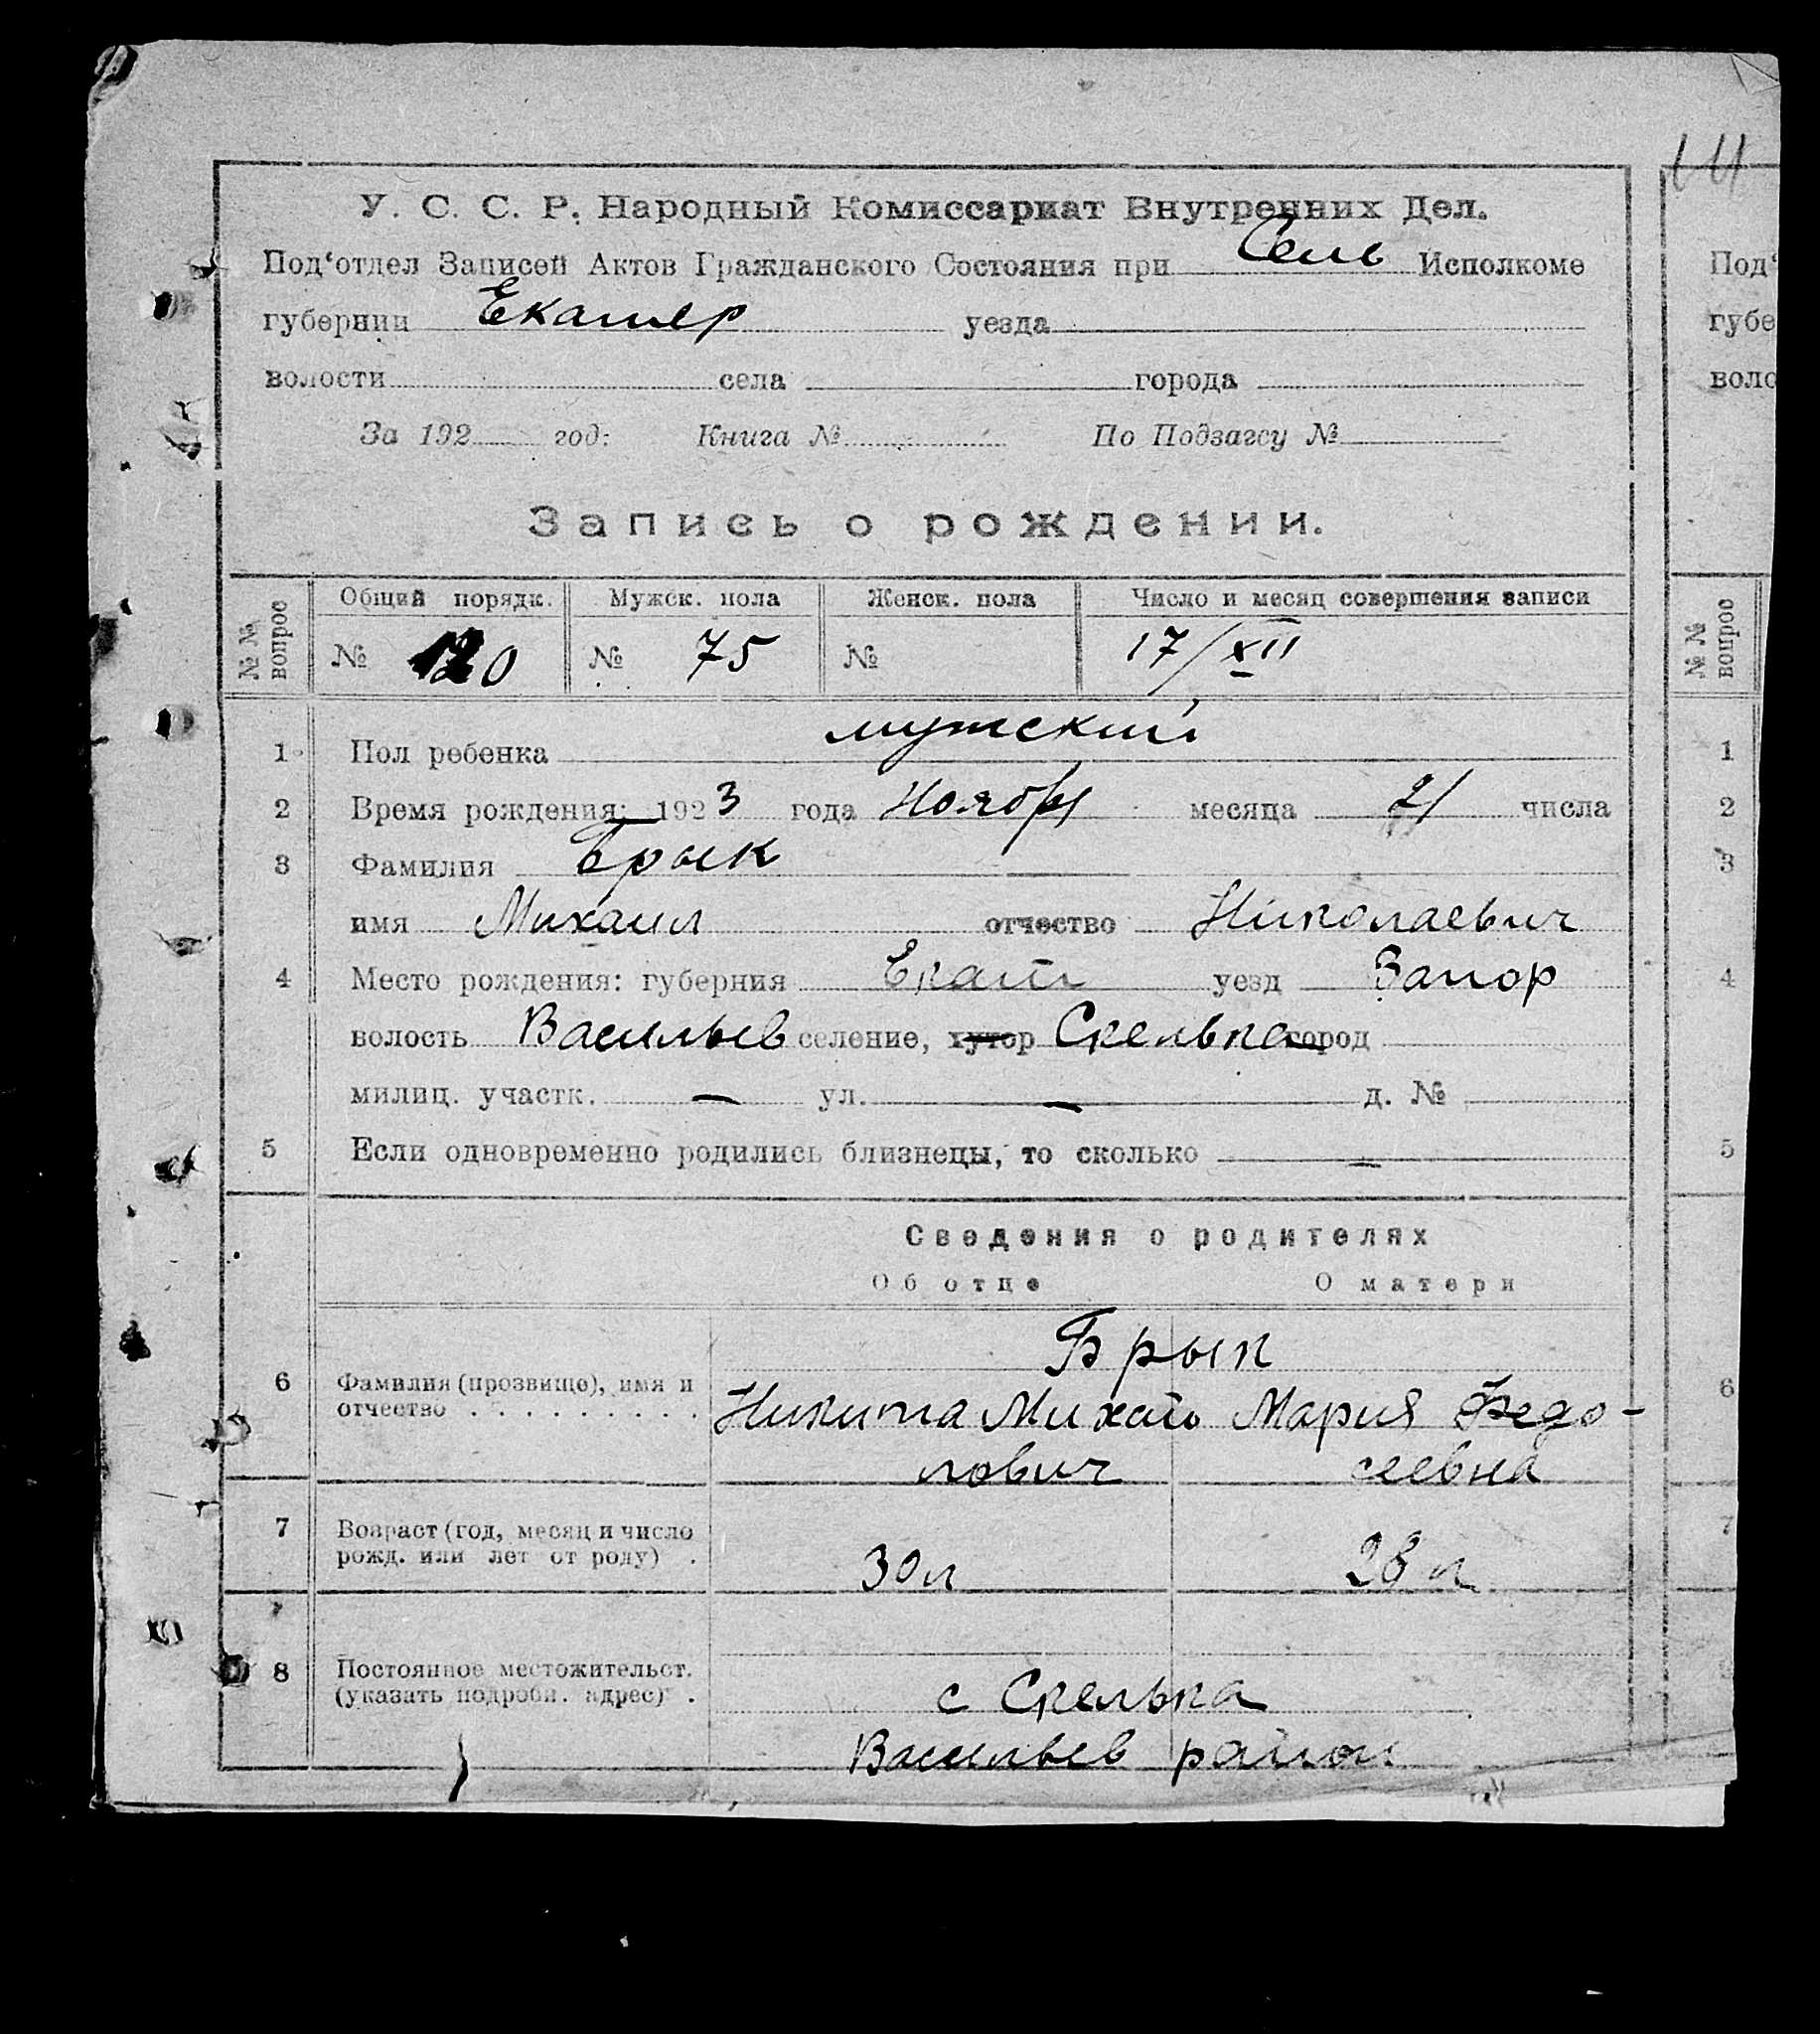 У. С. С. Р. Народный Комиссариат Внутренних Дел.
Под‘отдел Записей Актов Гражданского Состояния при Сель Исполкоме
губернии Екатер уезда
волости села города
За 192 год. Книга № По Подзагсу №
Запись о рождении.
№ № вопрос Общий порядк. Мужск. пола Женск. пола Число и месяц совершения записи
№ 120 № 75 № 17/XII
1 Пол ребенка мужский
2 Время рождения: 1923 года Ноября месяца 21 числа
3 Фамилия Брык
имя Михаил отчество Николаевич
4 Место рождения: губерния Екат уезд Запор
волость Васильев селение, хутор Скелька город
милиц. участк. — ул. — д. №
5 Если одновременно родились близнецы, то сколько —
Сведения о родителях
Об отце О матери
Брык
6 Фамилия (прозвище), имя и отчество Никита Михай Мария Федо-
лович сеевна
7 Возраст (год, месяц и число
рожд. или лет от роду) 30 л 28 л
8 Постоянное местожительст.
(указать подробн. адрес) с Скелька
Васильев район
Под‘
губе
воло
№ № вопрос
1
2
3
4
5
6
7